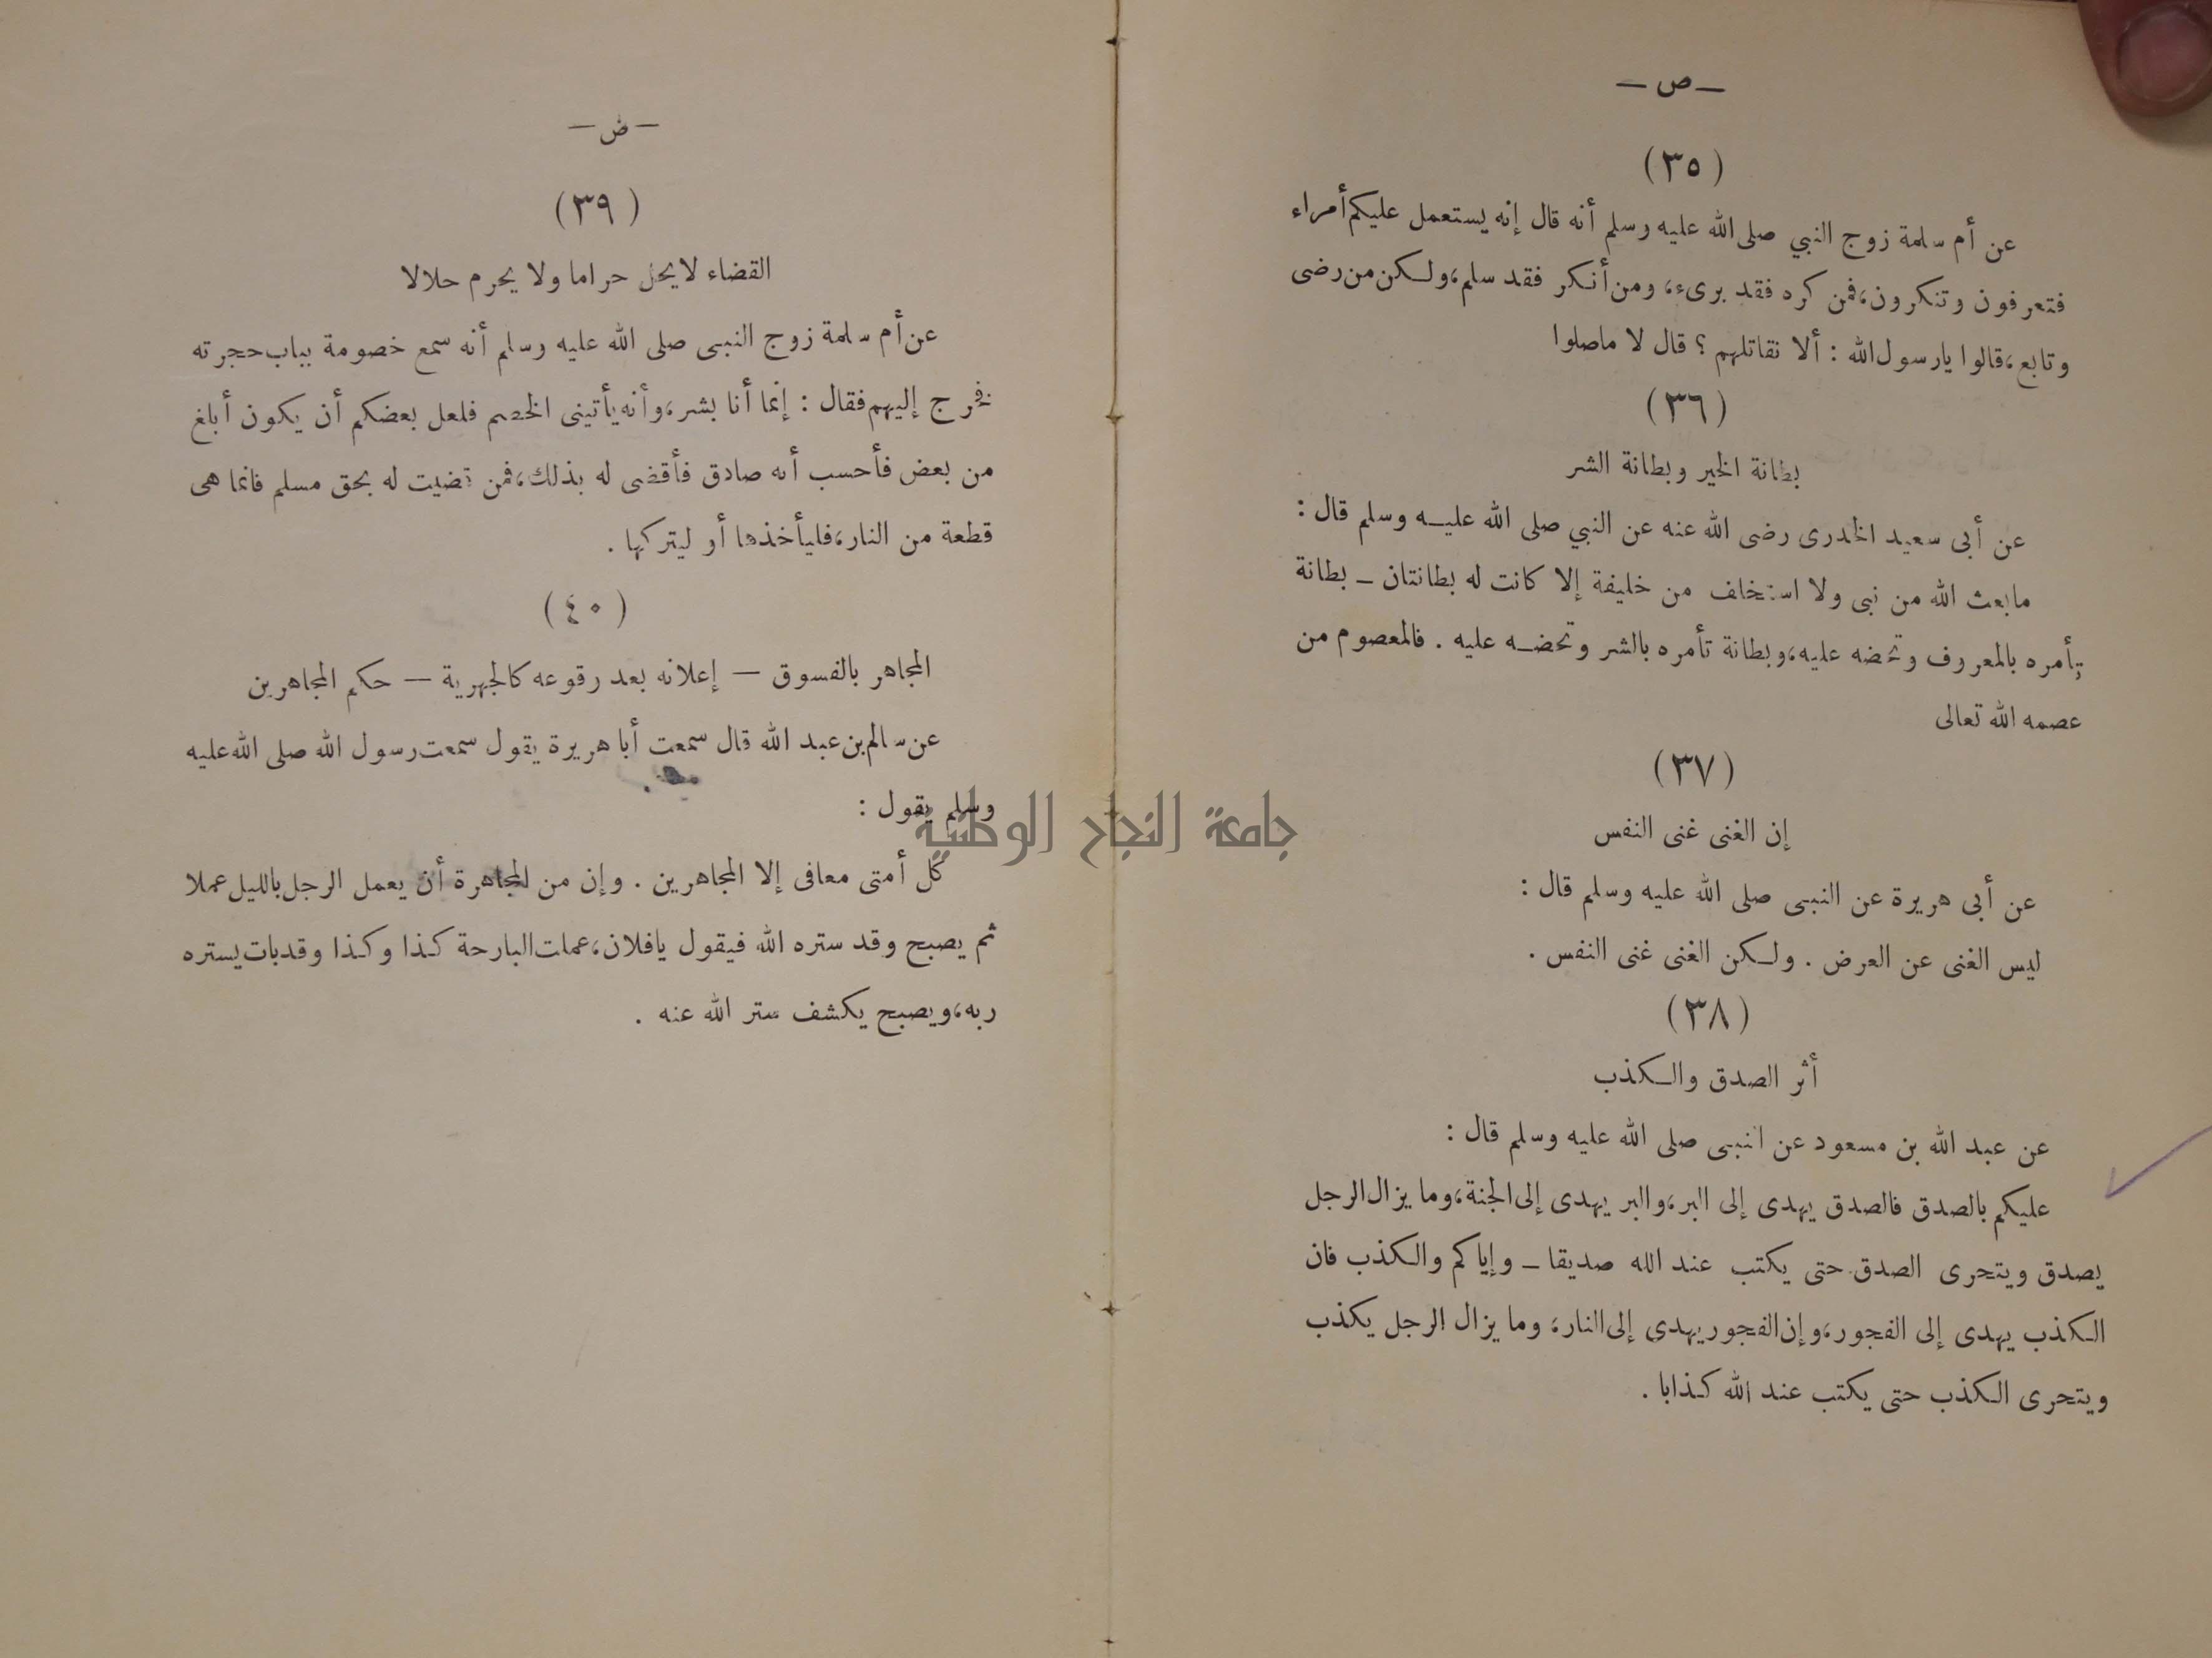 — ص —
(٣٥)
عن أم سلمة زوج النبي صلى الله عليه وسلم أنه قال إنه يستعمل عليكم أمراء
فتعرفون وتنكرون، فمن كره فقد برىء، ومن أنكر فقد سلم، ولكن من رضى
وتابع، قالوا يارسول الله : ألا نقاتلهم ؟ قال لا ماصلوا
(٣٦)
بطانة الخير وبطانة الشر
عن أبى سعيد الخدرى رضى الله عنه عن النبي صلى الله عليه وسلم قال :
مابعث الله من نبى ولا استخلف من خليفة إلا كانت له بطانتان — بطانة
تأمره بالمعروف وتحضه عليه، وبطانة تأمره بالشر وتحضه عليه . فالمعصوم من
عصمه الله تعالى
(٣٧)
إن الغنى غنى النفس
عن أبى هريرة عن النبى صلى الله عليه وسلم قال :
ليس الغنى عن العرض . ولكن الغنى غنى النفس .
(٣٨)
أثر الصدق والكذب
عن عبد الله بن مسعود عن النبى صلى الله عليه وسلم قال :
عليكم بالصدق فالصدق يهدى إلى البر، والبر يهدى إلى الجنة، وما يزال الرجل
يصدق ويتحرى الصدق حتى يكتب عند الله صديقا — وإياكم والكذب فان
الكذب يهدى إلى الفجور، وإن الفجور يهدى إلى النار، وما يزال الرجل يكذب
ويتحرى الكذب حتى يكتب عند الله كذابا .
— ض —
(٣٩)
القضاء لا يحل حراما ولا يحرم حلالا
عن أم سلمة زوج النبى صلى الله عليه وسلم أنه سمع خصومة بباب حجرته
فخرج إليهم فقال : إنما أنا بشر، وأنه يأتينى الخصم فلعل بعضكم أن يكون أبلغ
من بعض فأحسب أنه صادق فأقضى له بذلك، فمن قضيت له بحق مسلم فانما هى
قطعة من النار، فليأخذها أو ليتركها .
(٤٠)
المجاهر بالفسوق — إعلانه بعد رقوعه كالجهرية — حكم المجاهرين
عن سالم بن عبد الله قال سمعت أبا هريرة يقول سمعت رسول الله صلى الله عليه
وسلم يقول :
جامعة النجاح الوطنية
كل أمتى معافى إلا المجاهرين . وإن من المجاهرة أن يعمل الرجل بالليل عملا
ثم يصبح وقد ستره الله فيقول يافلان، عملت البارحة كذا وكذا وقد بات يستره
ربه، ويصبح يكشف ستر الله عنه .